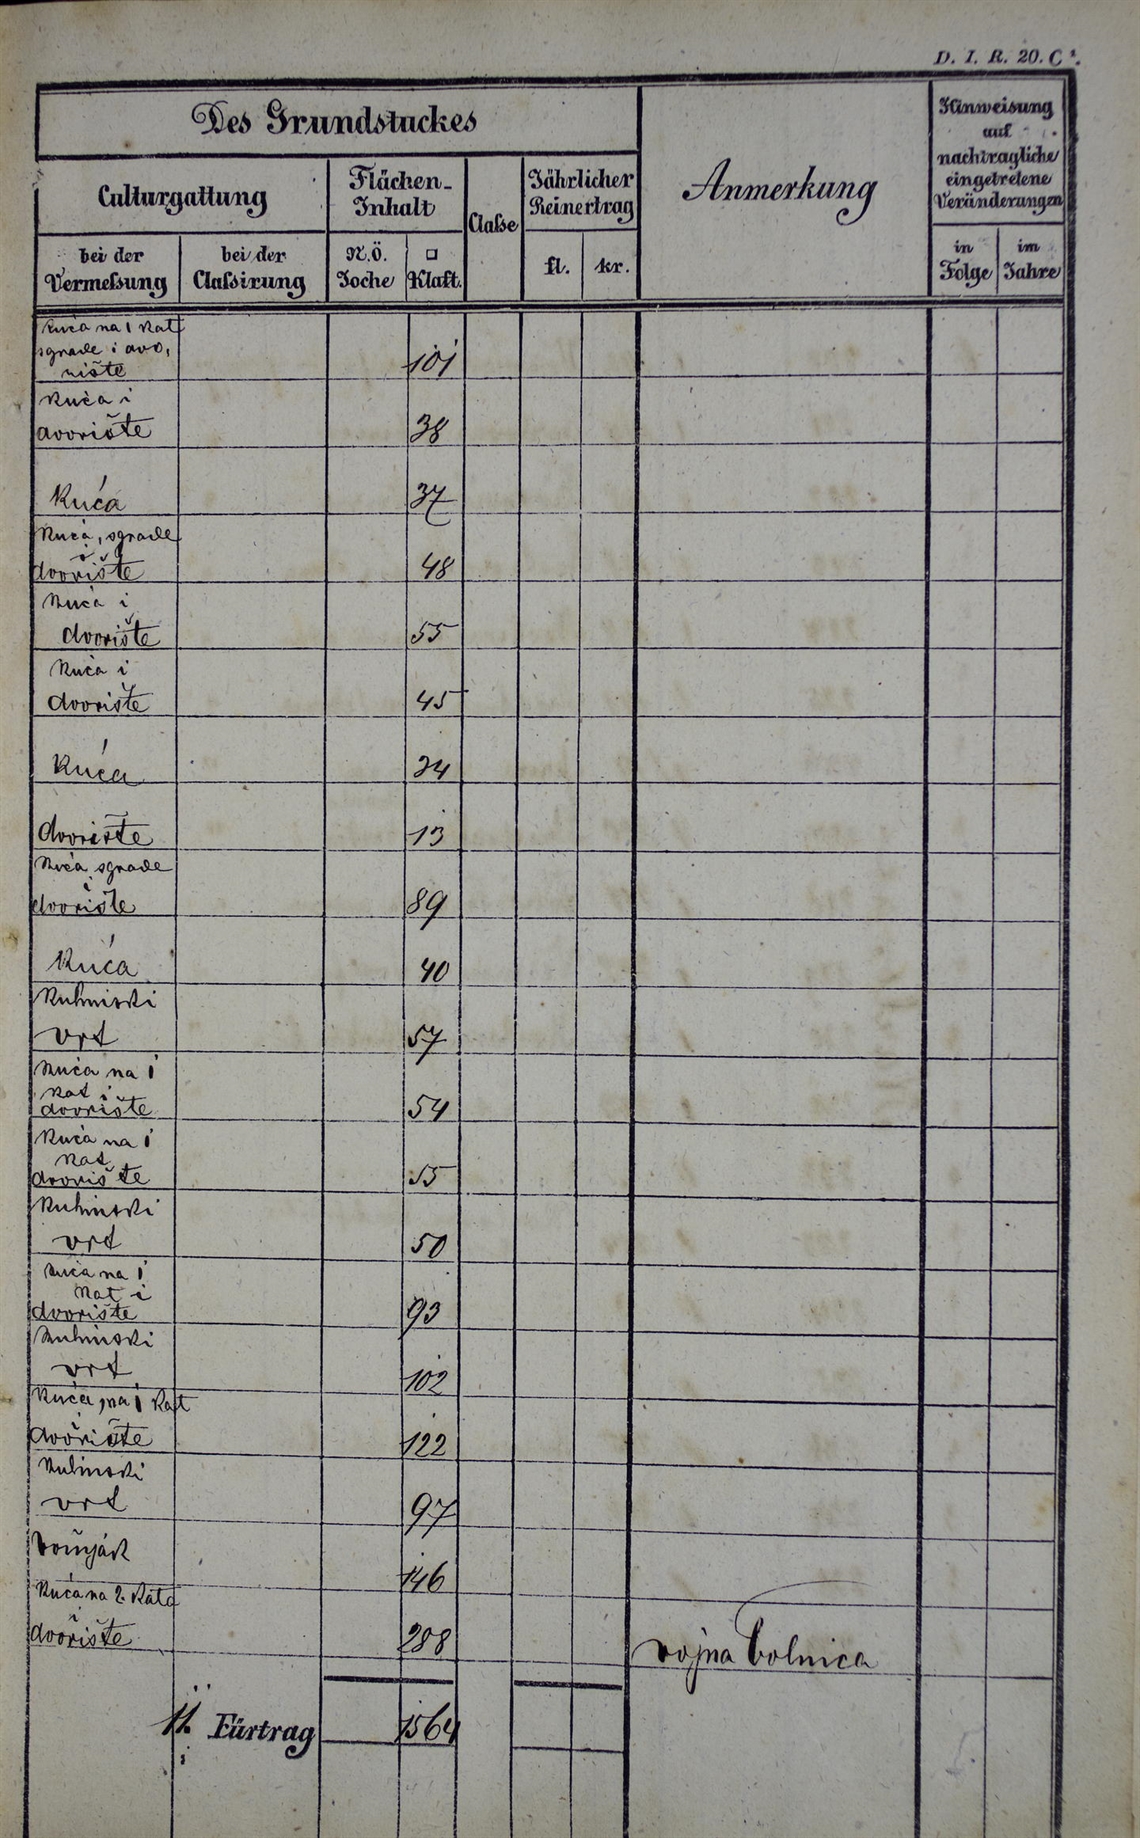 D. I. R. 20. C¹.
Des Grundstuckes
Anmerkung
Hinweisung
auf
nachtragliche
eingetretene
Veränderungen
Culturgattung
Flächen-
Inhalt
Classe
Jährlicher
Reinertrag
bei der
Vermessung
bei der
Classirung
N.Ö.
Joche
□
Klaft.
fl.
kr.
in
Folge
im
Jahre
Kuća na 1 Kat
sgrade i dvo,
rište
101
Kuća i
dvorište
38
Kuća
37
Kuća, sgrade
i
dvorište
48
Kuća i
dvorište
55
Kuća i
dvorište
45
Kuća
34
dvorište
13
Kuća sgrade
i
dvorište
89
Kuća
40
Kuhinski
vrt
57
Kuća na 1
Kat i
dvorište
54
Kuća na 1
Kat
dvorište
55
Kuhinski
vrt
50
Kuća na 1
Kat i
dvorište
93
Kuhinski
vrt
102
Kuća na 1 Kat
i
dvorište
122
Kuhinski
vrt
97
146
Kuća na 2. Kata
i
dvorište
288
vojna bolnica
11. Fürtrag
1564